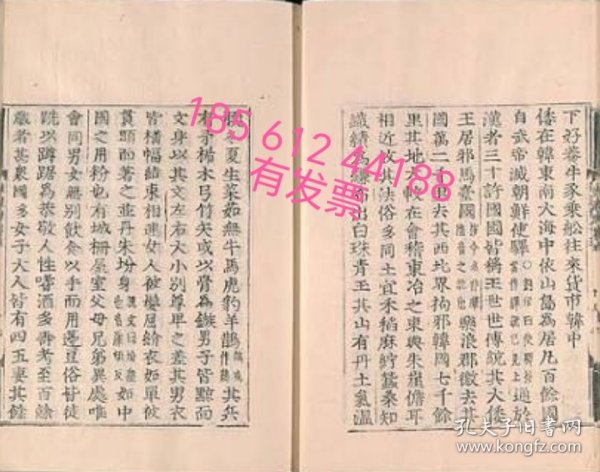 下好養牛豕乗船往來貨市韓中
倭在韓東南大海中依山島爲居凡百餘國
自武帝滅朝鮮使驛通於
漢者三十許國國皆稱王世世傳統其大倭
王居邪馬臺國樂浪郡徼去其
國萬二千里去其西北界拘邪韓國七千餘
里其地大較在會稽東冶之東與朱崖儋耳
相近故其法俗多同土宜禾稻麻紵蠶桑知
織績爲縑布出白珠青玉其山有丹土氣溫
冬夏生菜茹無牛馬虎豹羊鵲其兵
有矛楯木弓竹矢或以骨爲鏃男子皆黥面
文身以其文左右大小別尊卑之差其男衣
皆橫幅結束相連女人被髮屈紒衣如單被
貫頭而著之並丹朱坋身如中
國之用粉也有城柵屋室父母兄弟異處唯
會同男女無別飲食以手而用籩豆俗皆徒
跣以蹲踞爲恭敬人性嗜酒多壽考至百餘
歲者甚衆國多女子大人皆有四五妻其餘
185 612 44188
有发票
孔夫子旧书网
www.kongfz.com